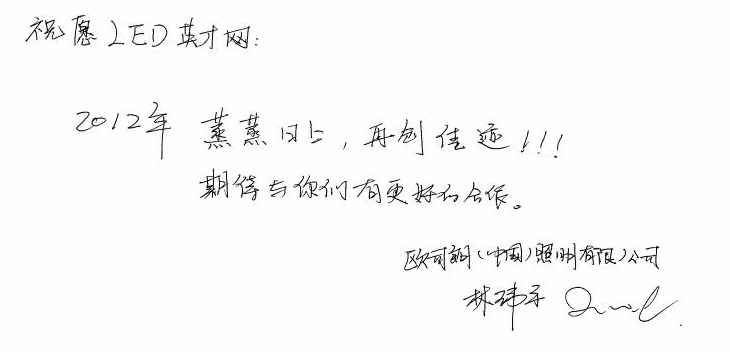 祝愿LED英才网:
2012年 蒸蒸日上,再创佳迹!!!
期待与你们有更好的合作。
欧司朗(中国)照明有限公司
林玮平